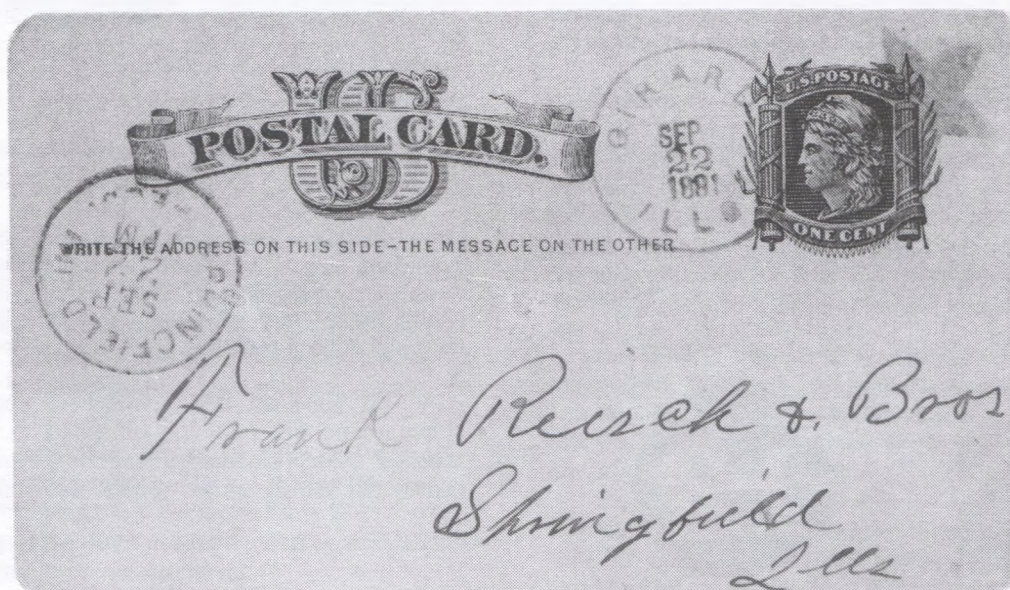 U.S. POSTAGE
US
POSTAL CARD.
GIRARD
SEP
22
1881
ILLS
ONE CENT
WRITE THE ADDRESS ON THIS SIDE-THE MESSAGE ON THE OTHER
SPRINGFIELD
SEP
22
Frank Reisch & Bros
Springfield
Ills